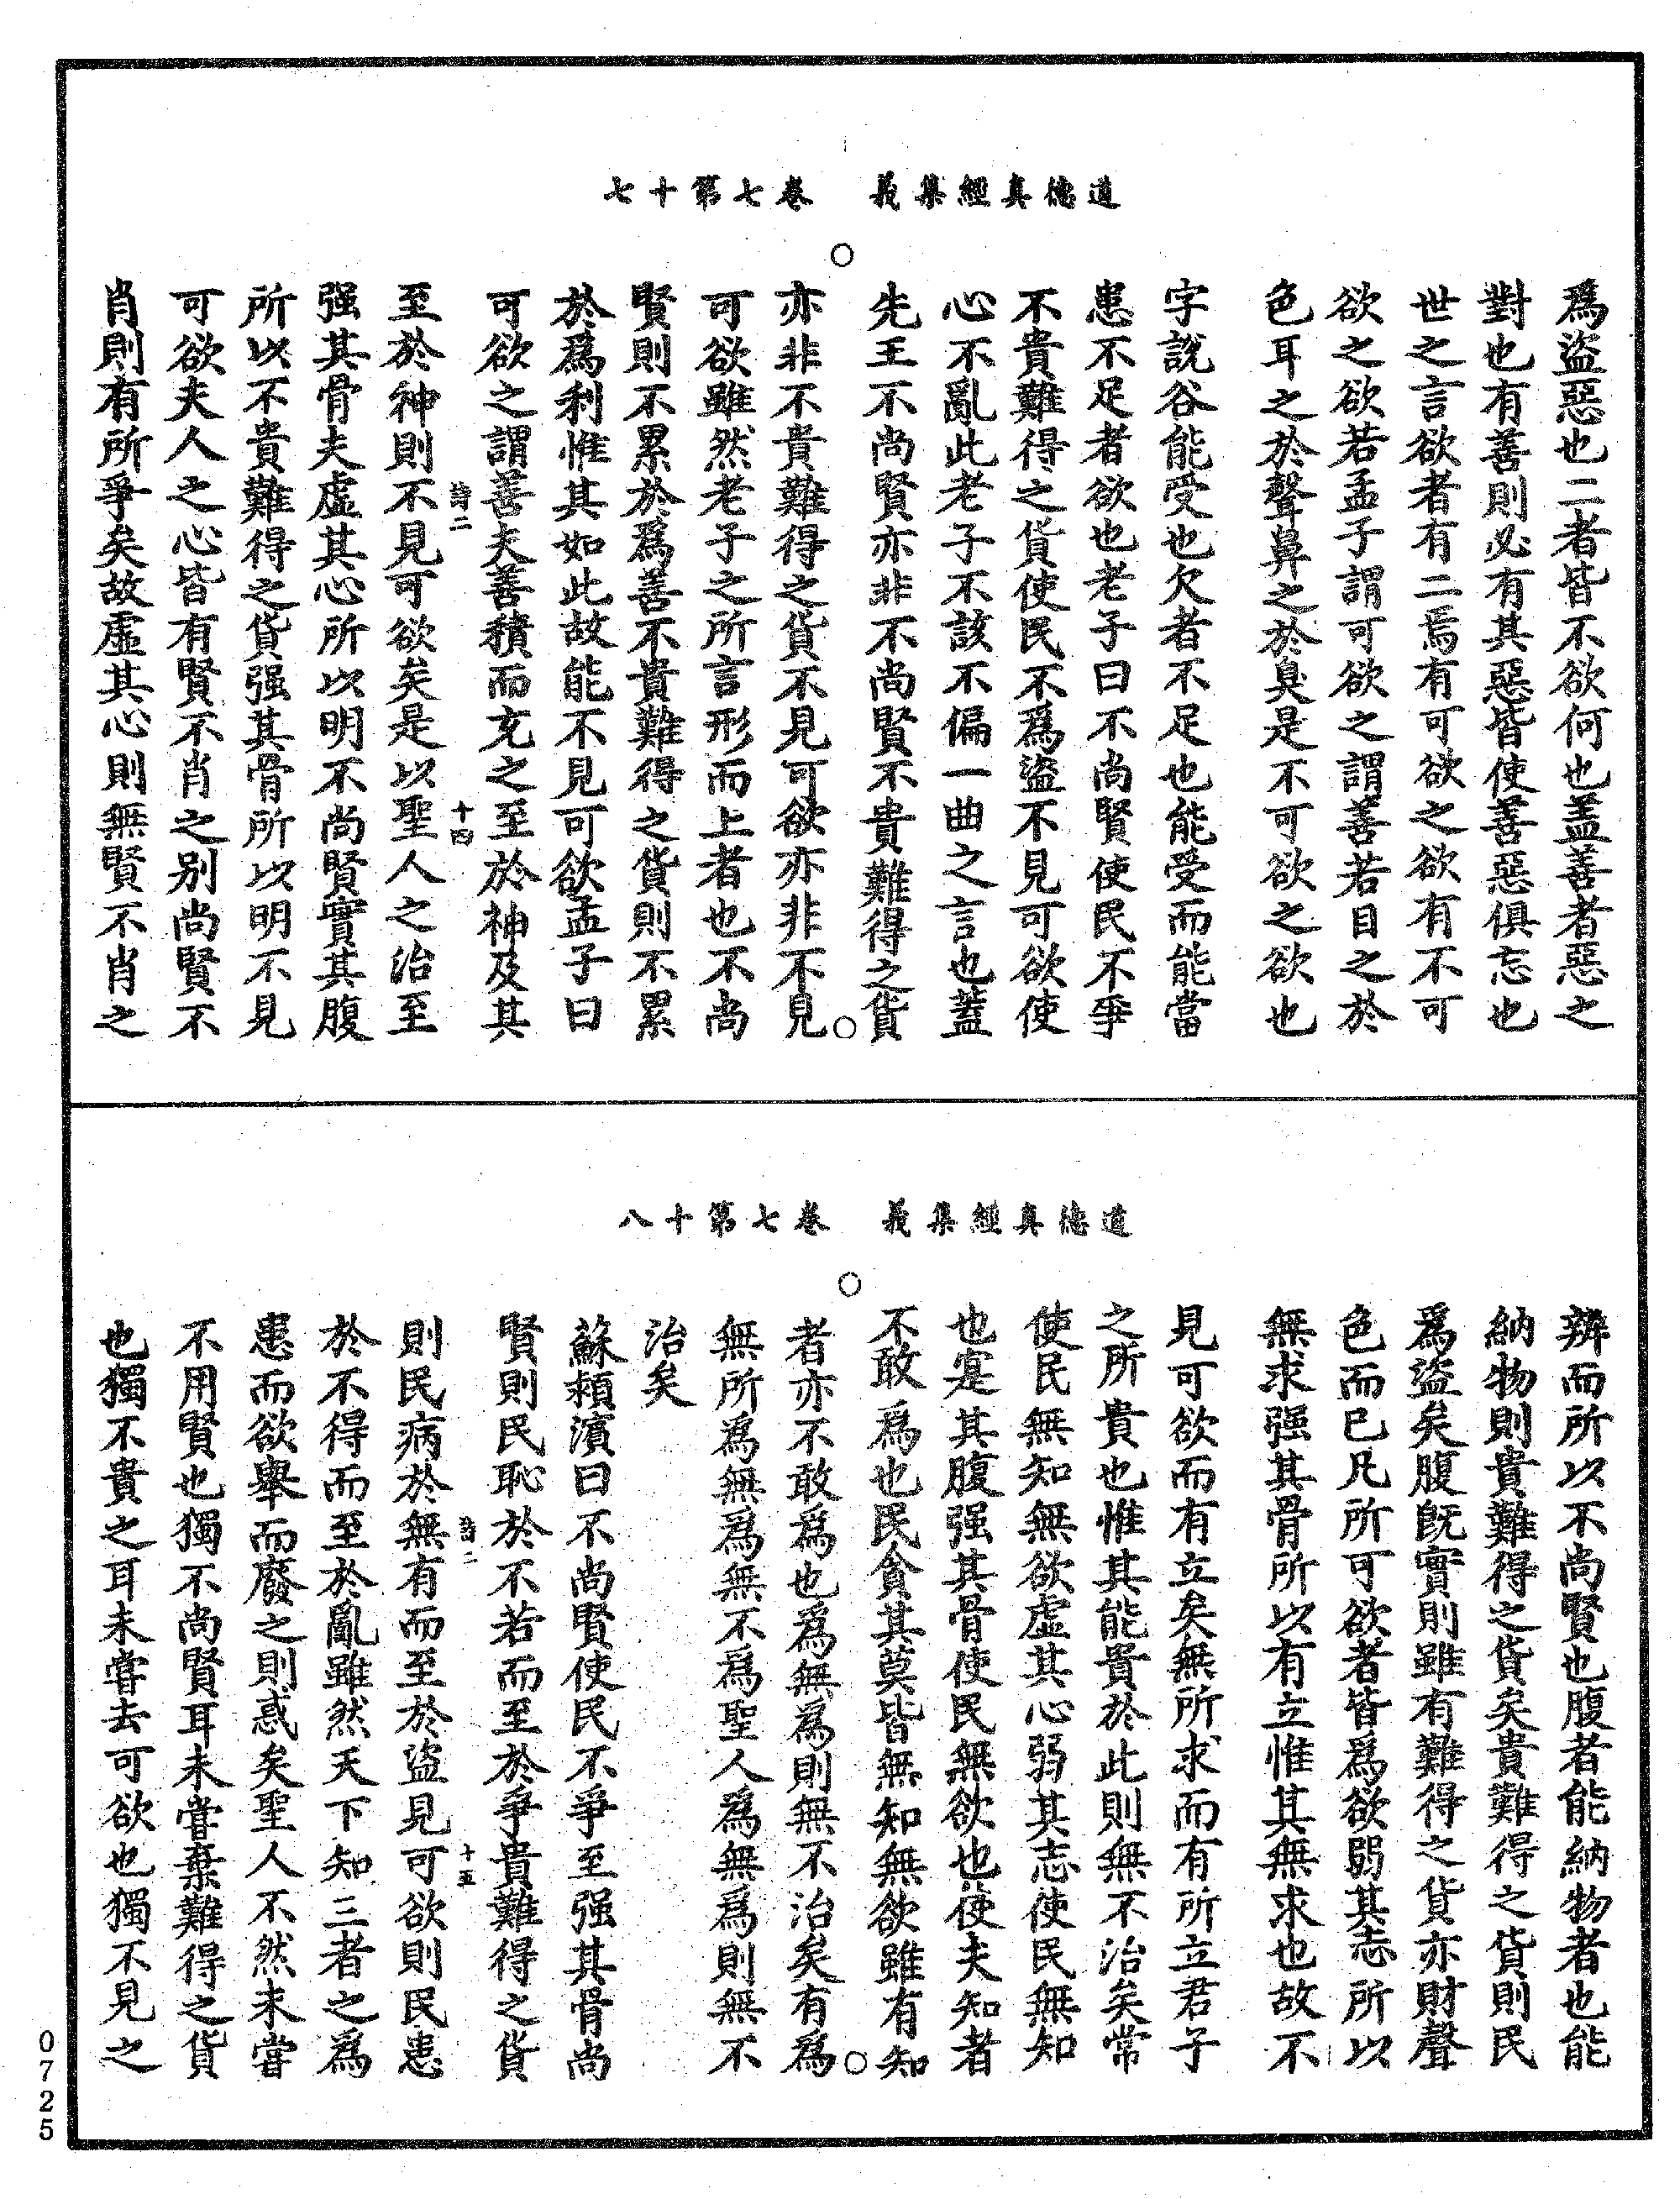 道德真經集義 卷七第十七
爲盜惡也二者皆不欲何也蓋善者惡之
對也有善則必有其惡皆使善惡俱忘也
世之言欲者有二焉有可欲之欲有不可
欲之欲若孟子謂可欲之謂善若目之於
色耳之於聲鼻之於臭是不可欲之欲也
字說谷能受也欠者不足也能受而能當
患不足者欲也老子曰不尚賢使民不爭
不貴難得之貨使民不爲盜不見可欲使
心不亂此老子不該不偏一曲之言也蓋
先王不尚賢亦非不尚賢不貴難得之貨
亦非不貴難得之貨不見可欲亦非不見
可欲雖然老子之所言形而上者也不尚
賢則不累於爲善不貴難得之貨則不累
於爲利惟其如此故能不見可欲孟子曰
可欲之謂善夫善積而充之至於神及其
至於神則不見可欲矣是以聖人之治至
詩二
十四
强其骨夫虛其心所以明不尚賢實其腹
所以不貴難得之貨强其骨所以明不見
可欲夫人之心皆有賢不肖之别尚賢不
肖則有所爭矣故虛其心則無賢不肖之
道德真經集義 卷七第十八
辨而所以不尚賢也腹者能納物者也能
納物則貴難得之貨矣貴難得之貨則民
爲盜矣腹既實則雖有難得之貨亦財聲
色而已凡所可欲者皆爲欲弱其志所以
無求强其骨所以有立惟其無求也故不
見可欲而有立矣無所求而有所立君子
之所貴也惟其能貴於此則無不治矣常
使民無知無欲虛其心弱其志使民無知
也寔其腹强其骨使民無欲也使夫知者
不敢爲也民貪其莫皆無知無欲雖有知
者亦不敢爲也爲無爲則無不治矣有爲
無所爲無爲無不爲聖人爲無爲則無不
治矣
蘇頴濱曰不尚賢使民不爭至强其骨尚
賢則民恥於不若而至於爭貴難得之貨
則民病於無有而至於盜見可欲則民患
詩二
十五
於不得而至於亂雖然天下知三者之爲
患而欲舉而廢之則惑矣聖人不然未嘗
不用賢也獨不尚賢耳未嘗棄難得之貨
也獨不貴之耳未嘗去可欲也獨不見之
0725